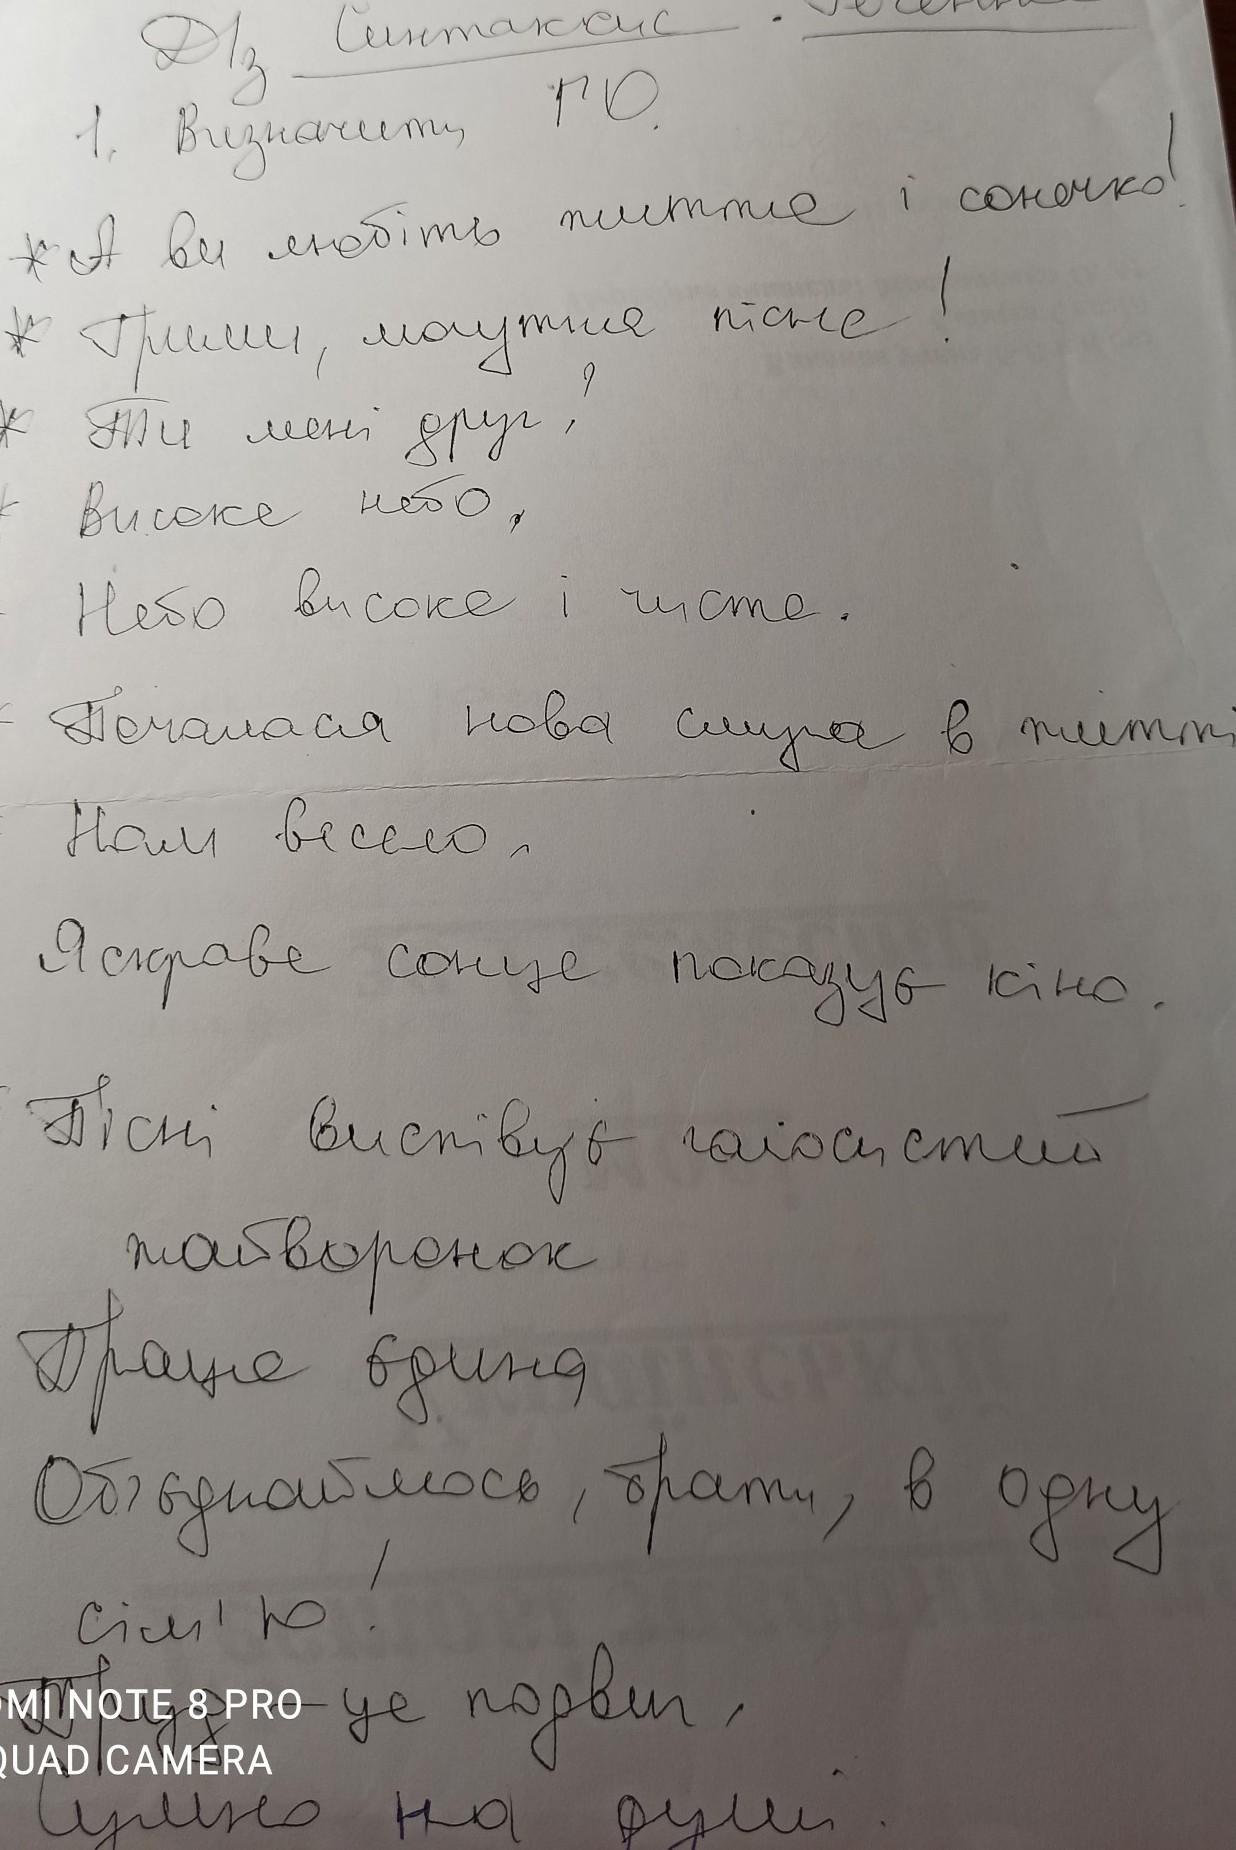 Д/з Синтаксис. Речення
1. Визначити ГО.
* А ви любіть життя і сонечко!
* Грими, могутня пісне!
* Ти мені друг?
* Високе небо.
Небо високе і чисте.
Почалася нова смуга в житті
Нам весело.
Яскраве сонце показує кіно.
Пісні виспівує голосистий
жайворонок
Праця єдина
Об'єднаймось, брати, в одну
сім'ю!
Труд – це подвиг.
Сумно на душі.
REDMI NOTE 8 PRO
QUAD CAMERA